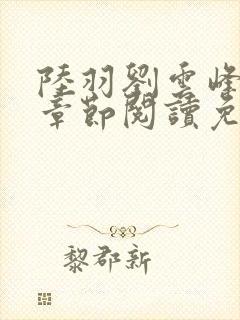 陸羽劉雲峰
章節閱讀免
黎郡新